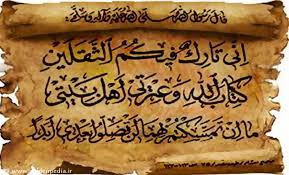 قال رسول الله صلى الله عليه وآله وسلم
إني تارك فيكم الثقلين
كتاب الله وعترتي أهل بيتي
ما إن تمسكتم بهما لن تضلوا بعدي أبدا